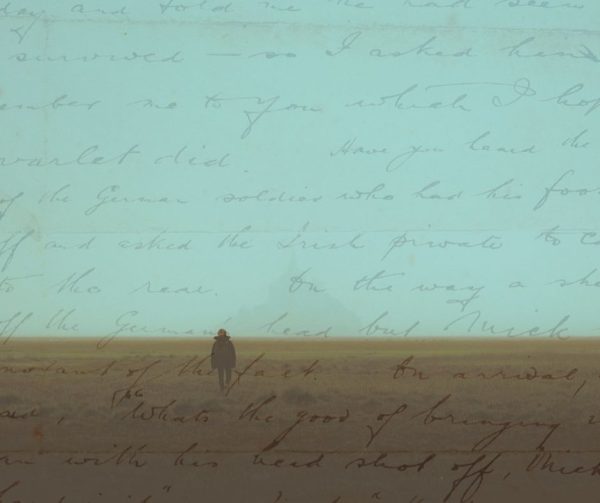 day and told me he had seen
survived — so I asked him
ember me to you which I hop
varlet did. Have you heard the
of the German soldier who had his foot
ff and asked the Irish private to ca
to the rear. On the way a she
off the German's head but Mick
norant of the fact. On arrival,
"Whats the good of bringing
an with his head shot off, Mick